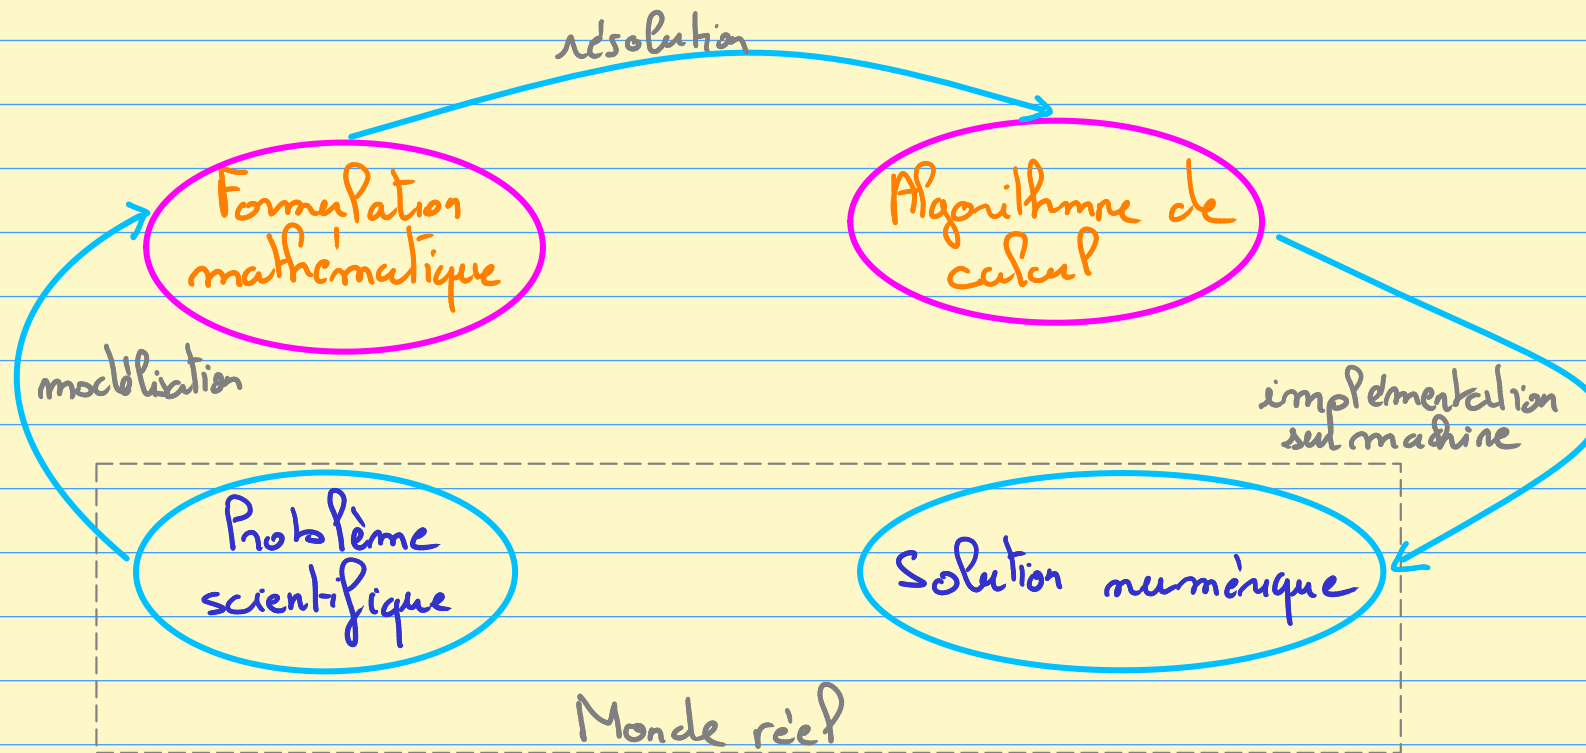 résolution
Formulation
mathématique
Algorithme de
calcul
modélisation
implémentation
sur machine
Problème
scientifique
Solution numérique
Monde réel